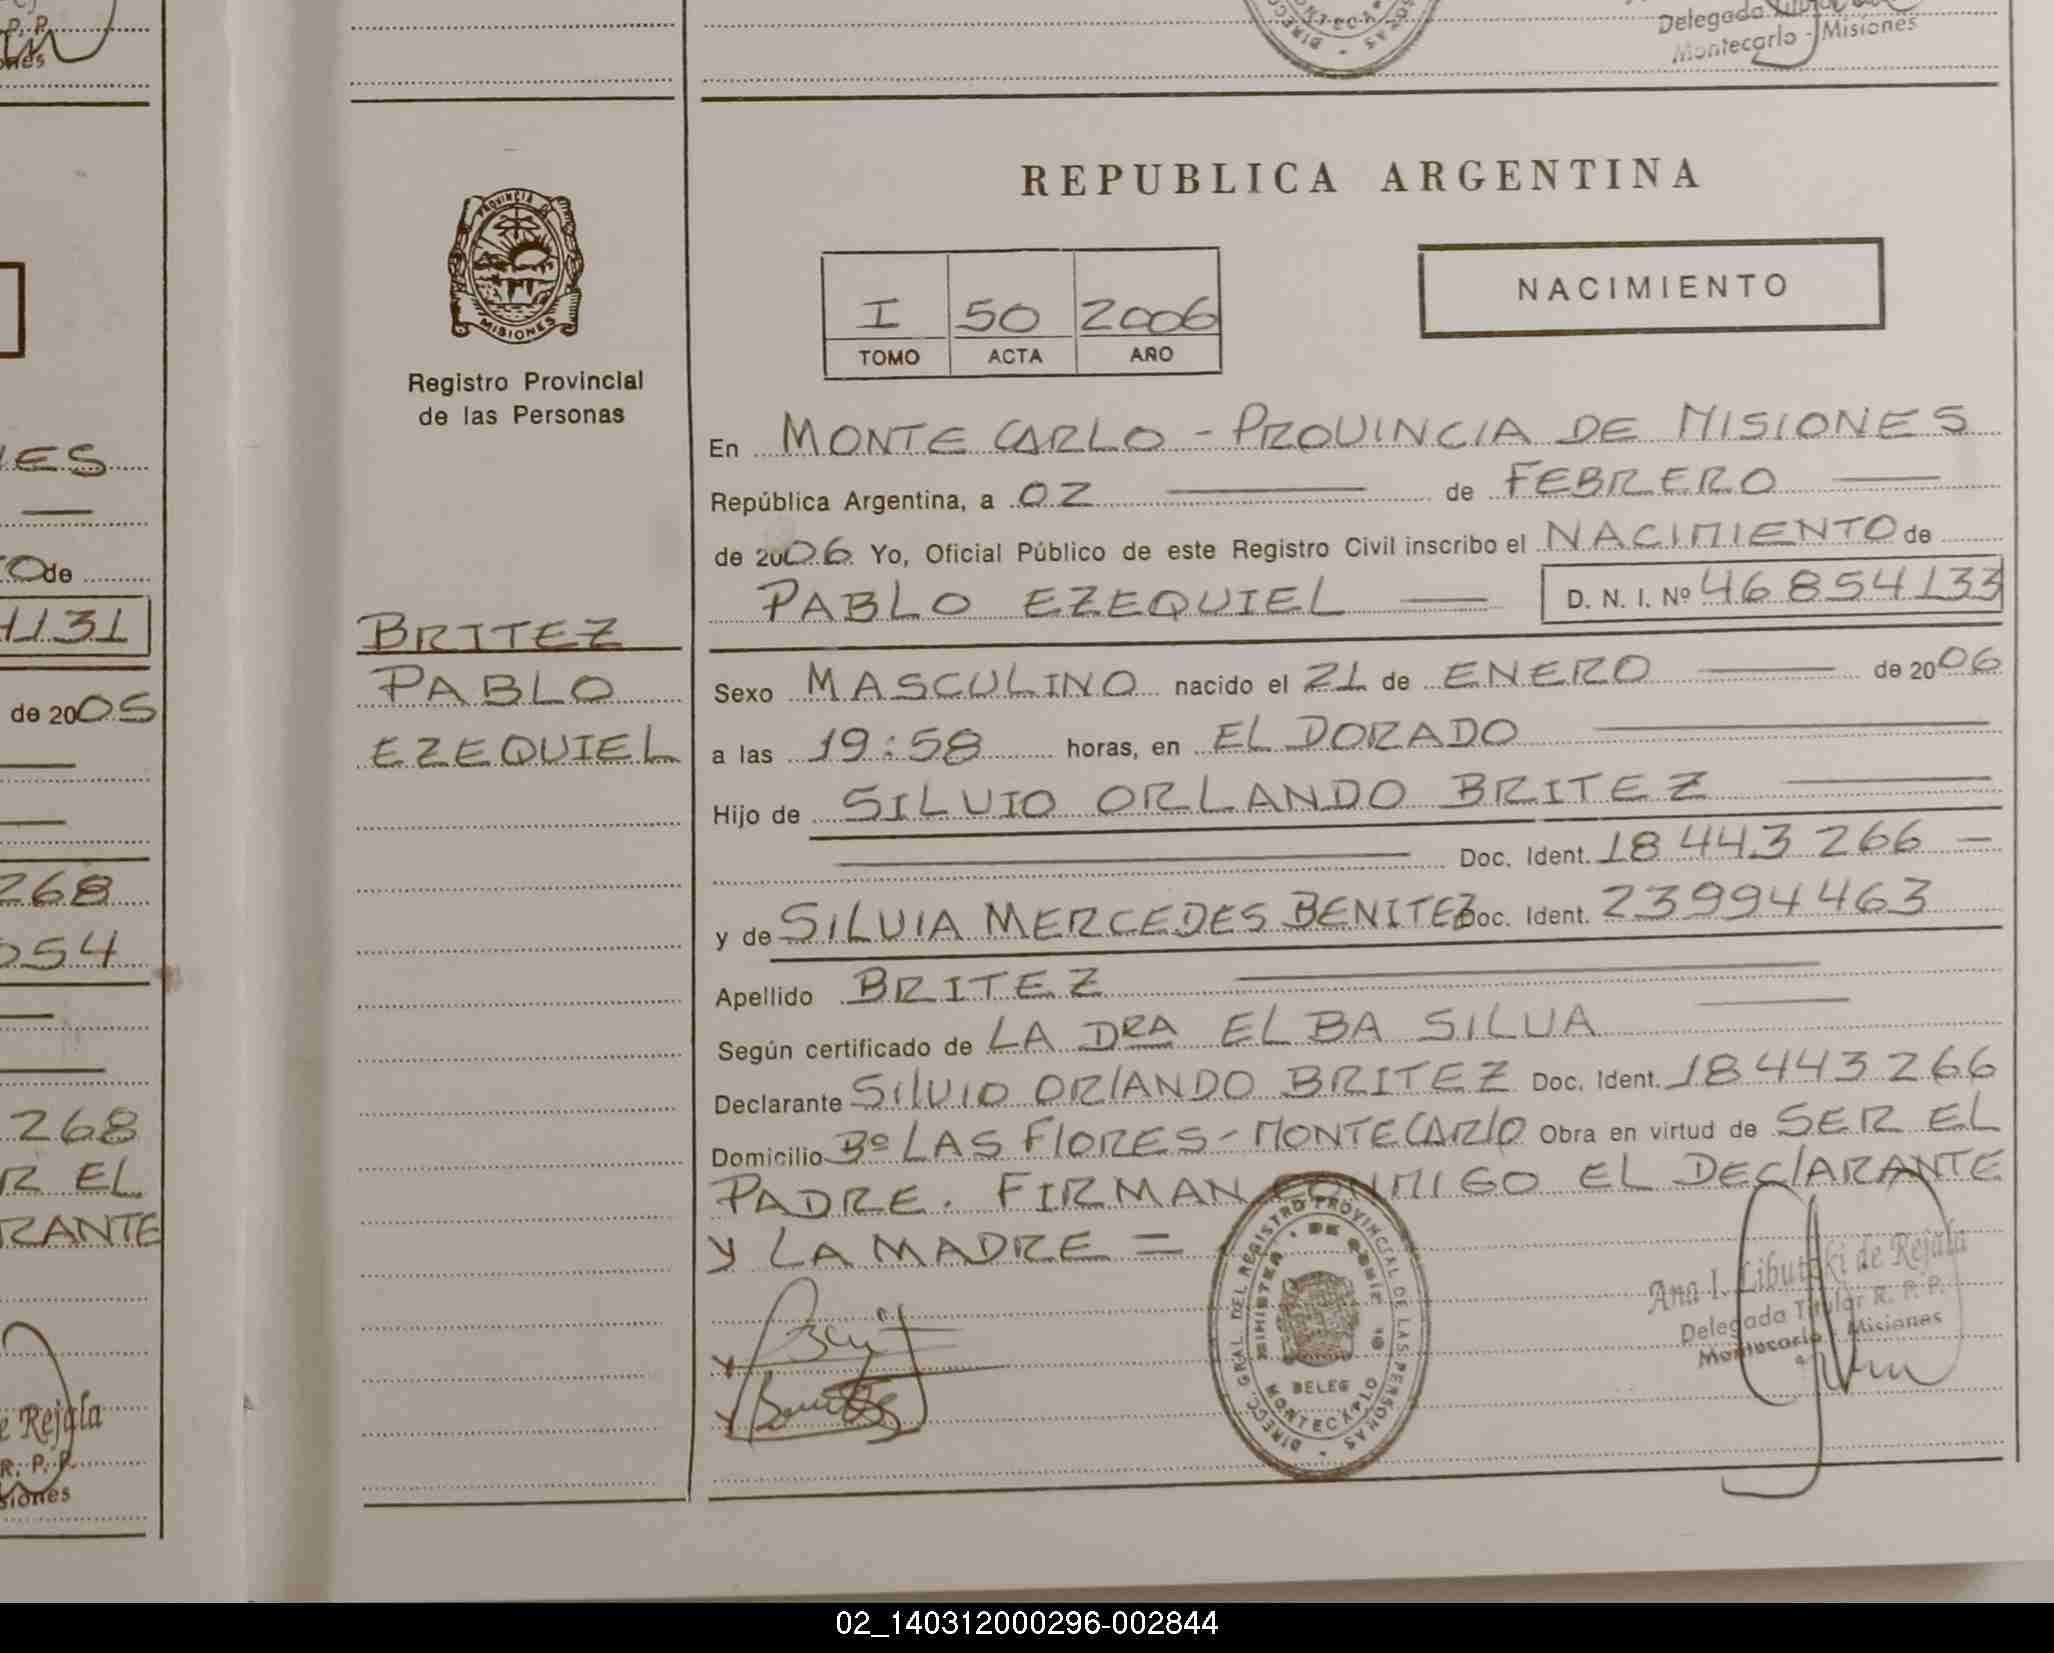 Delegada Titular
Montecarlo - Misiones
REPUBLICA ARGENTINA
PROVINCIA DE
MISIONES
Registro Provincial
de las Personas
I 50 2006
TOMO ACTA AÑO
NACIMIENTO
En MONTE CARLO - PROVINCIA DE MISIONES
República Argentina, a 02 de FEBRERO
de 2006 Yo, Oficial Público de este Registro Civil inscribo el NACIMIENTO de
PABLO EZEQUIEL D. N. I. Nº 46 854 133
BRITEZ
PABLO
EZEQUIEL
Sexo MASCULINO nacido el 21 de ENERO de 2006
a las 19:58 horas, en EL DORADO
Hijo de SILVIO ORLANDO BRITEZ
Doc. Ident. 18 443 266
y de SILVIA MERCEDES BENITEZ Doc. Ident. 23994463
Apellido BRITEZ
Según certificado de LA DRA ELBA SILVA
Declarante SILVIO ORLANDO BRITEZ Doc. Ident. 18443266
Domicilio Bº LAS FLORES - MONTECARLO Obra en virtud de SER EL
PADRE. FIRMAN CONMIGO EL DECLARANTE
Y LA MADRE =
DIRECC. GRAL. DEL REGISTRO PROVINCIAL DE LAS PERSONAS
DELEG
MONTECARLO
Ana I. Libutzki de Rejala
Delegada Titular R. P. P.
Montecarlo - Misiones
NES
O de
4131
de 2005
268
054
268
R EL
RANTE
e Rejala
R. P. P.
siones
02_140312000296-002844